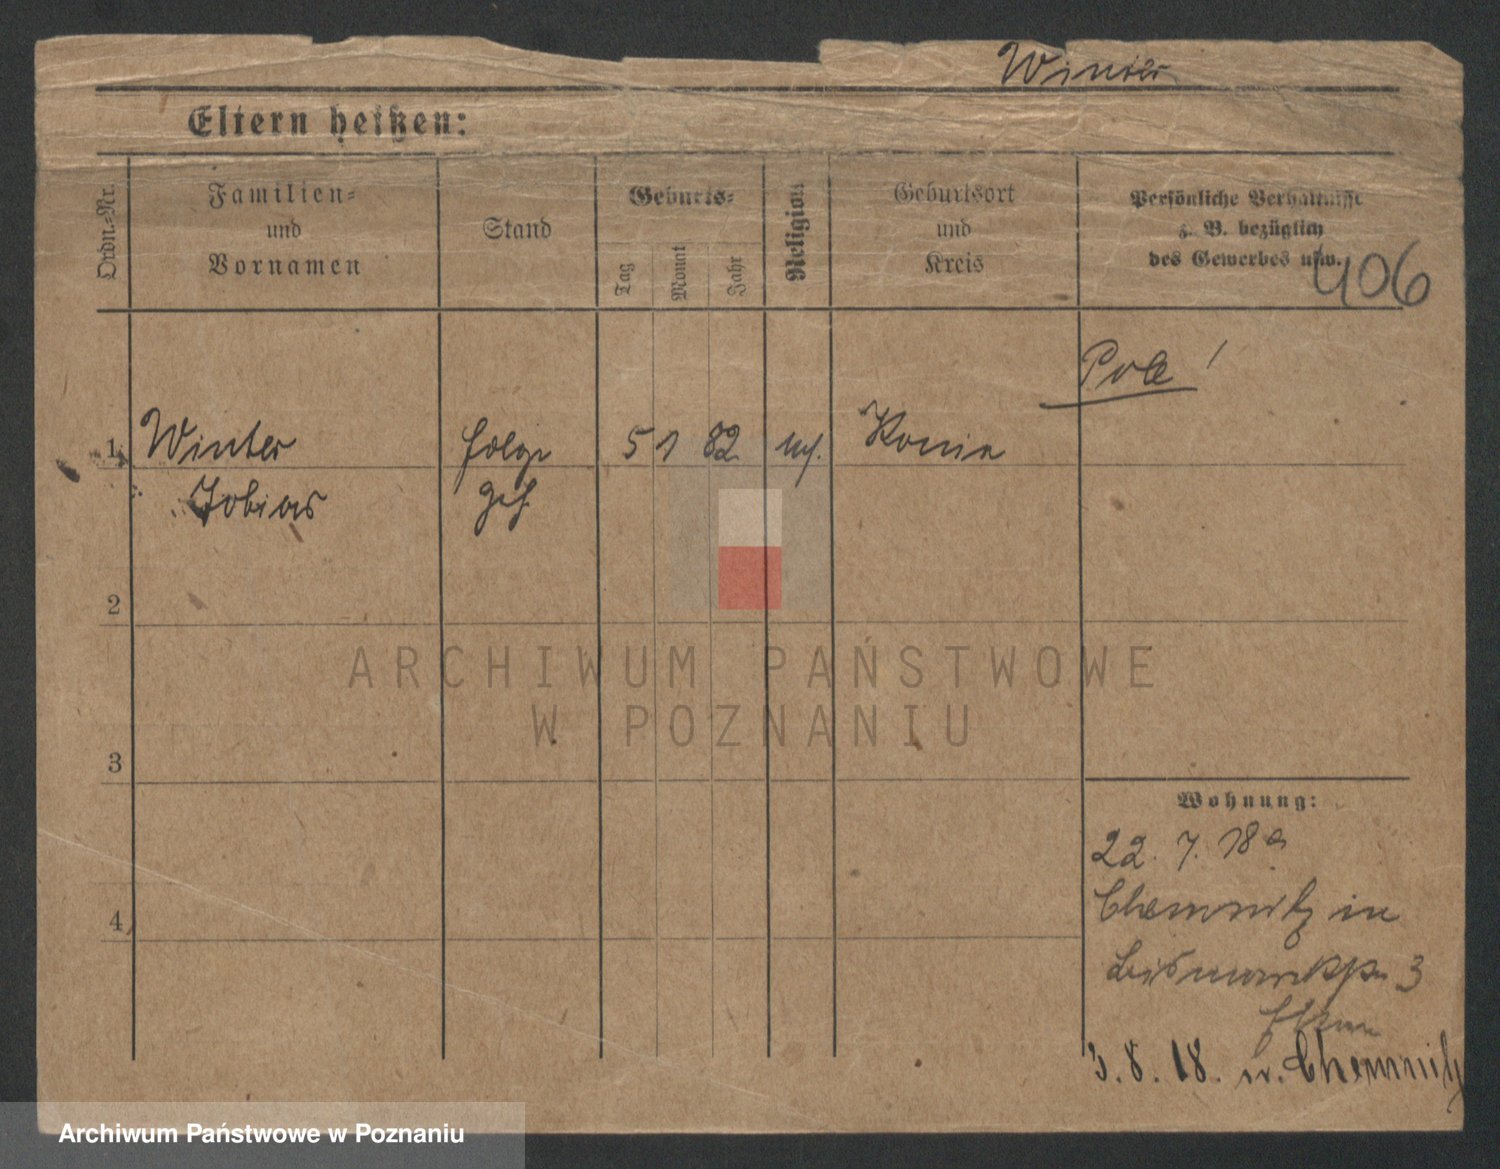 Winter
Eltern heißen:
Ordn.-Nr.
Familien-
und
Vornamen
Stand
Geburts-
Tag
Monat
Jahr
Religion
Geburtsort
und
Kreis
Persönliche Verhältnisse
z. B. bezüglich
des Gewerbes usw.
406
Pole !
1 Winter 5 1 82
Tobias
2
3
4
Wohnung:
22. 7. 18
Chemnitz in
3
3. 8. 18. Chemnitz
ARCHIWUM PAŃSTWOWE
W POZNANIU
Archiwum Państwowe w Poznaniu